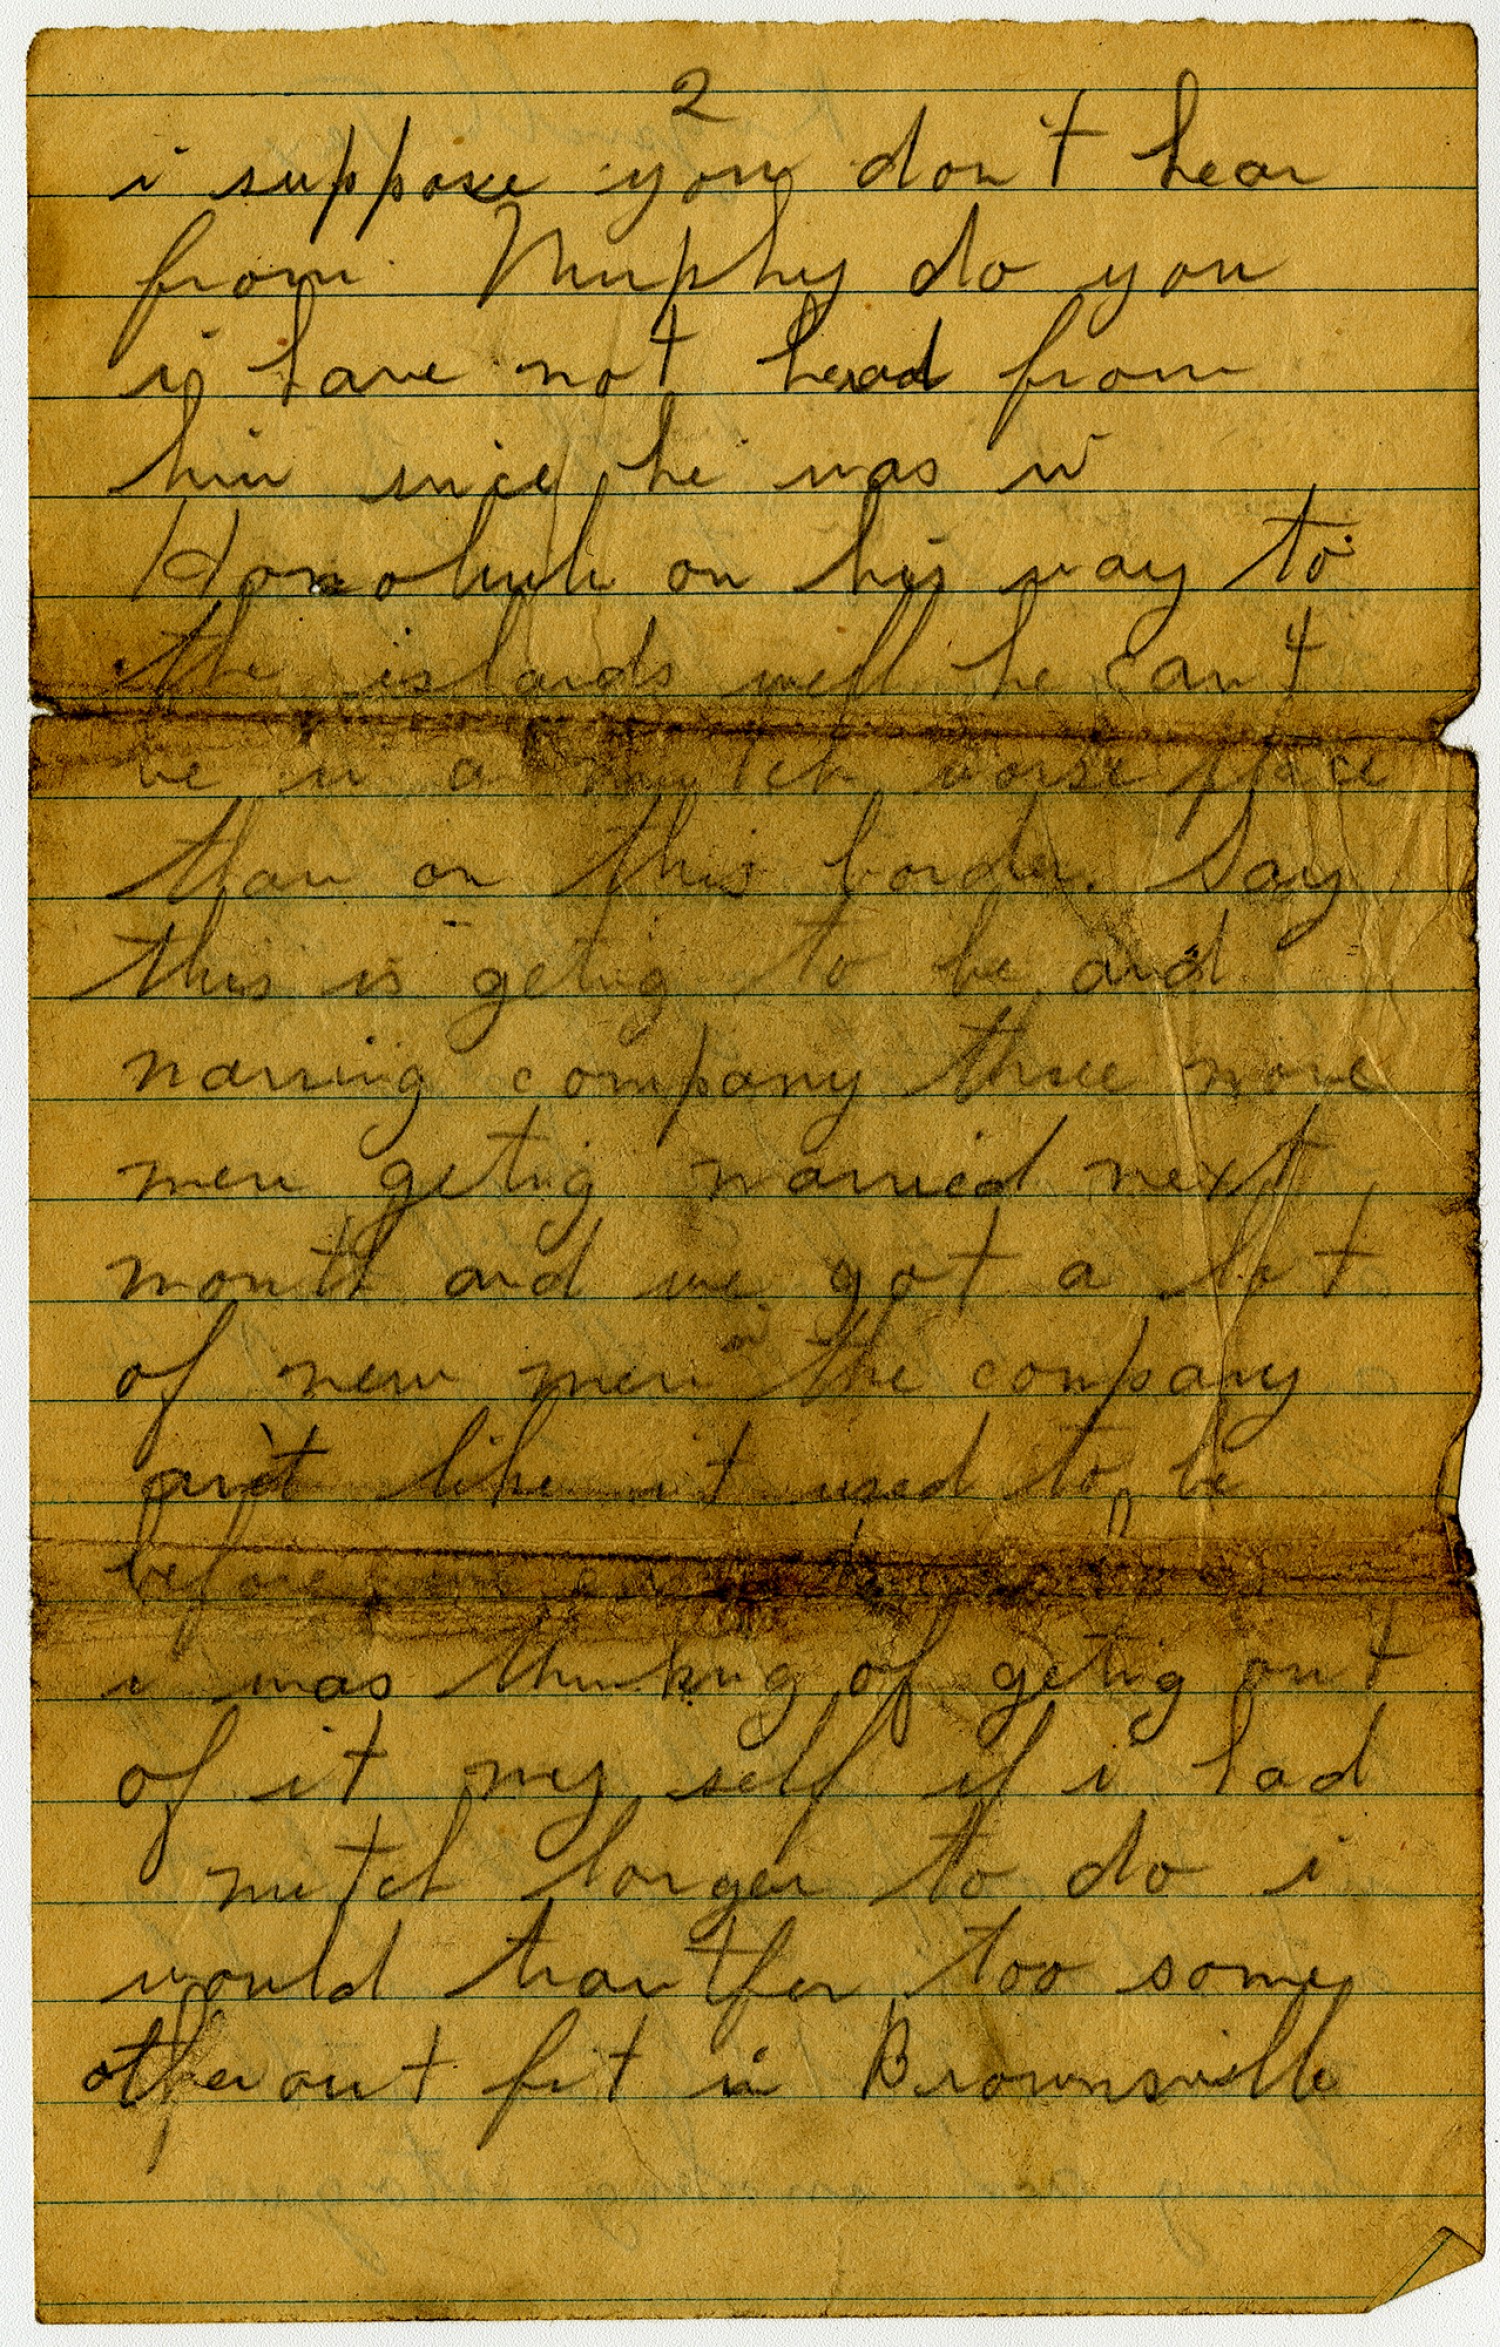 2
i suppose you don't hear
from Murphy do you
i have not head from
him since he was in
Honolulu on his way to
the islands well he can't
be in a mutch worse place
than on this border. Say
this is geting to be and
marring company three more
men geting married next
month and we got a lot
of new men in the company
ain't like it used to be
before we
i was thinking of geting out
of it my self if i had
mutch longer to do i
would trantfer too some
other out fit in Brownsville